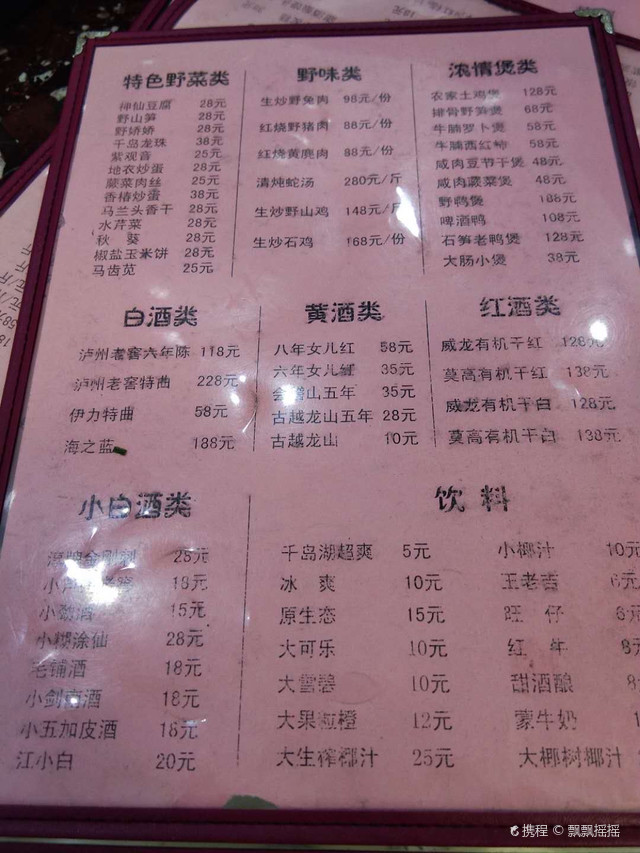 特色野菜类
神仙豆腐 28元
野山笋 28元
野娇娇 28元
千岛龙珠 38元
紫观音 25元
地衣炒蛋 28元
蕨菜肉丝 25元
香椿炒蛋 38元
马兰头香干 28元
水芹菜 28元
秋 葵 28元
椒盐玉米饼 28元
马齿苋 25元
野味类
生炒野兔肉 98元/份
红烧野猪肉 88元/份
红烧黄麂肉 88元/份
清炖蛇汤 280元/斤
生炒野山鸡 148元/斤
生炒石鸡 168元/份
浓情煲类
农家土鸡煲 128元
排骨野笋煲 68元
牛腩罗卜煲 58元
牛腩西红柿 58元
咸肉豆节干煲 48元
咸肉蕨菜煲 48元
野鸭煲 188元
啤酒鸭 108元
石笋老鸭煲 128元
大肠小煲 38元
白酒类
泸州老窖六年陈 118元
泸州老窖特曲 228元
伊力特曲 58元
海之蓝 188元
黄酒类
八年女儿红 58元
六年女儿红 35元
会稽山五年 35元
古越龙山五年 28元
古越龙山 10元
红酒类
威龙有机干红 128元
莫高有机干红 138元
威龙有机干白 128元
莫高有机干白 138元
小白酒类
28元
18元
小劲酒 15元
小糊涂仙 28元
毛铺酒 18元
小剑南酒 18元
小五加皮酒 18元
江小白 20元
饮料
千岛湖超爽 5元
冰 爽 10元
原生态 15元
大可乐 10元
大雪碧 10元
大果粒橙 12元
大生榨椰汁 25元
小椰汁 10元
王老吉 6元
旺 仔 6元
红 牛 8元
甜酒酿 8
蒙牛奶 1
大椰树椰汁
携程 © 飘飘摇摇